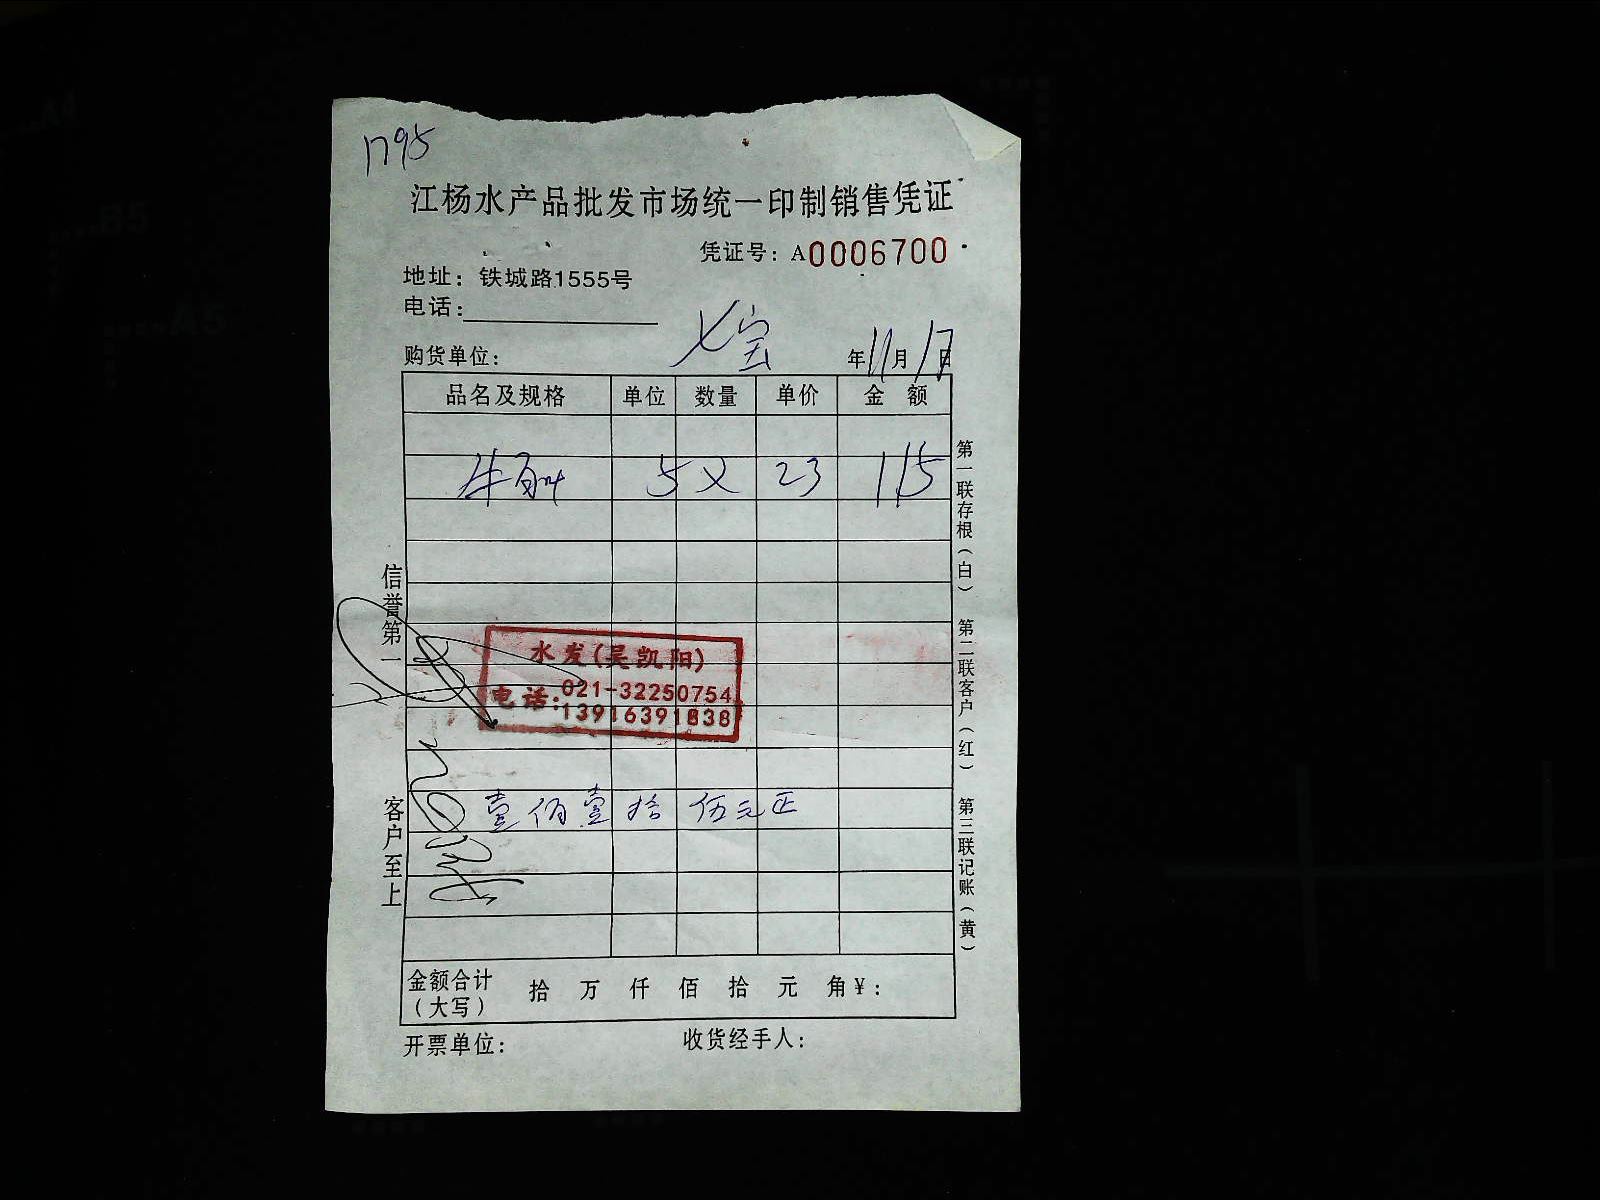 1795
江杨水产品批发市场统一印制销售凭证
凭证号：A0006700
地址：铁城路1555号
电话：
七宝
购货单位： 年11月17日
品名及规格 单位 数量 单价 金额
牛 5 23 115
水发(吴凯阳)
电话：021-32250754
13916391838
壹佰壹拾伍元正
金额合计（大写） 拾 万 仟 佰 拾 元 角￥：
开票单位： 收货经手人：
信誉第一
客户至上
第一联存根（白） 第二联客户（红） 第三联记账（黄）